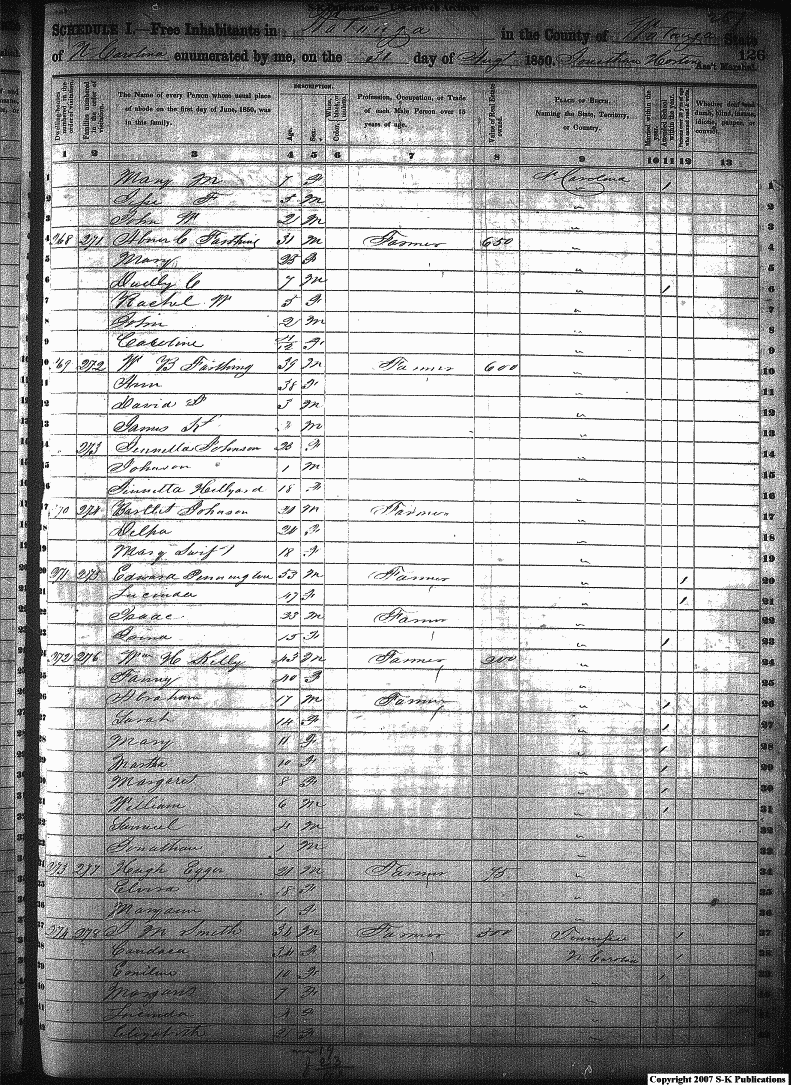 S-K Publications - USGenWeb Archives
SCHEDULE I.—Free Inhabitants in Watauga in the County of Watauga State
of N Carolina enumerated by me, on the day of Augt 1850. Jonathan Horton Ass't Marshal. 126
DESCRIPTION.
Dwelling-houses numbered in the order of visitation. Families numbered in the order of visitation. The Name of every Person whose usual place of abode on the first day of June, 1850, was in this family. Age. Sex. White, black, or mulatto. Profession, Occupation, or Trade of each Male Person over 15 years of age. Value of Real Estate owned. PLACE OF BIRTH. Naming the State, Territory, or Country. Married within the year. Attended School within the year. Persons over 20 y'rs of age who cannot read & write. Whether deaf and dumb, blind, insane, idiotic, pauper, or convict.
1 2 3 4 5 6 7 8 9 10 11 12 13
1 Mary M 7 F N Carolina 1 1
2 5 M " 2
3 John W 2 M " 3
4 268 271 Abner C Farthing 31 M Farmer 650 " 4
5 Mary 28 F " 5
6 Dudly C 7 M " 1 6
7 Rachel W 5 F " 7
8 John 2 M " 8
9 Caroline F " 9
10 269 272 Wm B Farthing 39 M Farmer 600 " 10
11 Ann 38 F " 11
12 David 3 M " 12
13 James M " 13
14 273 Johnson 23 F " 14
15 Johnson 1 M " 15
16 Hillyard 18 F " 16
17 270 274 Bartlet Johnson M Farmer " 17
18 Delpa F " 18
19 Mary Swift 18 F " 19
20 271 275 Edward Pennington 53 M Farmer " 1 20
21 Lucinda 47 F " 1 21
22 Isaac 23 M Farmer " 22
23 15 F " 1 23
24 272 276 Wm H Kelly 43 M Farmer 200 " 24
25 Fanny 40 F " 25
26 Abraham 17 M Farmer " 1 26
27 Sarah 14 F " 1 27
28 Mary 11 F " 1 28
29 Martha 10 F " 1 29
30 Margaret 8 F " 1 30
31 William 6 M " 1 31
32 Samuel 4 M " 32
33 Jonathan 1 M " 33
34 273 277 Hugh Egger 21 M Farmer 75 " 34
35 18 F " 35
36 1 F " 36
37 274 278 Smith 34 M Farmer 500 Tennessee 1 37
38 Candaca F N Carolina 1 38
39 Emiline 10 F " 1 39
40 7 F "
41 Lucinda 4 F "
42 Elizabeth 2 F "
Copyright 2007 S-K Publications